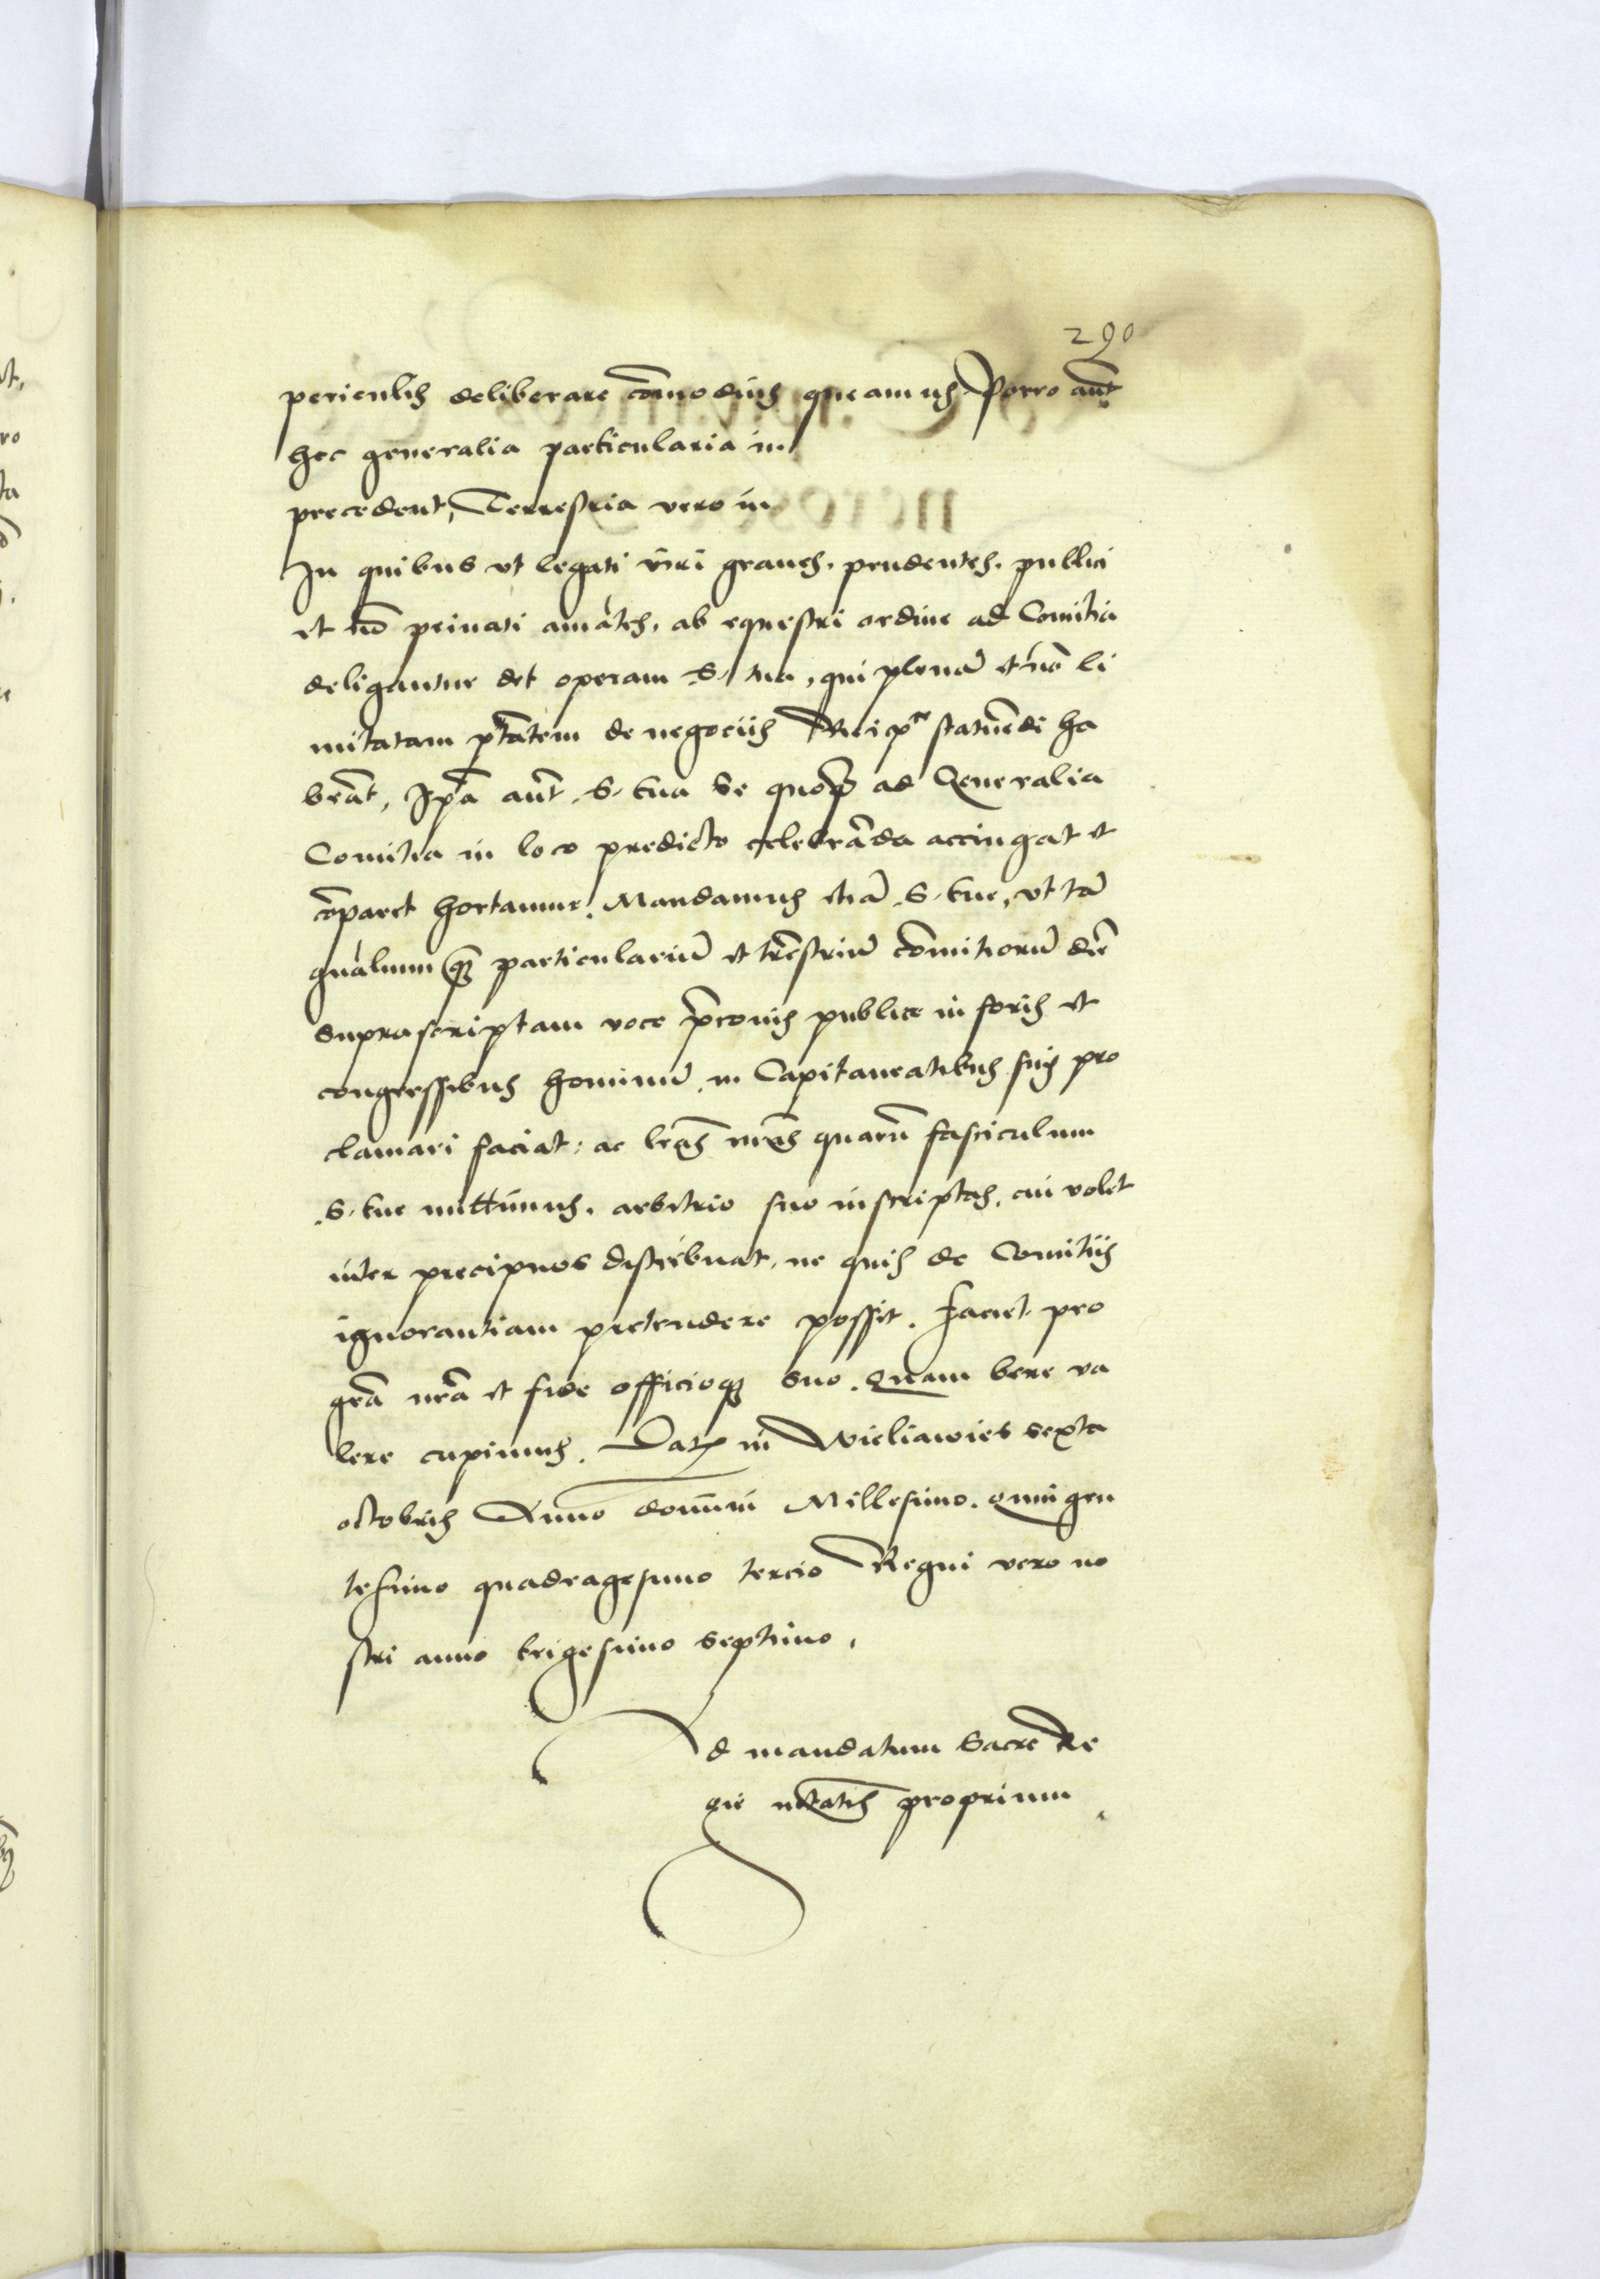 290
periculis deliberare com̄odius queamus Porro aut̄
hec generalia particularia in
precedent, Terrestria vero in
In quibus vt legati viri graues, prudentes, publici
et nō priuati amātes, ab equestri ordine ad Comitia
deligantur det operam S. tua, qui plenā et nō li
mitatam ptātem de negociis Reipce statuēdi ha
beāt, Ipā aut̄ S. tua se quoq ad Generalia
Comitia in loco predicto celebrāda accingat et
cōparet hortamur. Mandamus etiā S. tue, vt tā
gnalium q̄ particulariū et trēstriū comitiorū diē
suprascriptam voce p̄conis publice in foris et
congressibus hominū in Capitaneatibus suis pro
clamari faciat, ac lrās nrās quarū fasciculum
S. tue mittimus, arbitrio suo inscriptas, cui volet
inter precipuos distribuat, ne quis de Comitiis
ignorantiam pretendere possit. faciet pro
grā nrā et fide officioq suo. Quam bene va
lere cupimus. Dat in Wieliawies sexta
octobris Anno domini Millesimo quingen
tesimo quadragesimo tercio Regni vero no
stri anno trigesimo septimo,
Ad mandatum Sacre Re
gie mtatis proprium